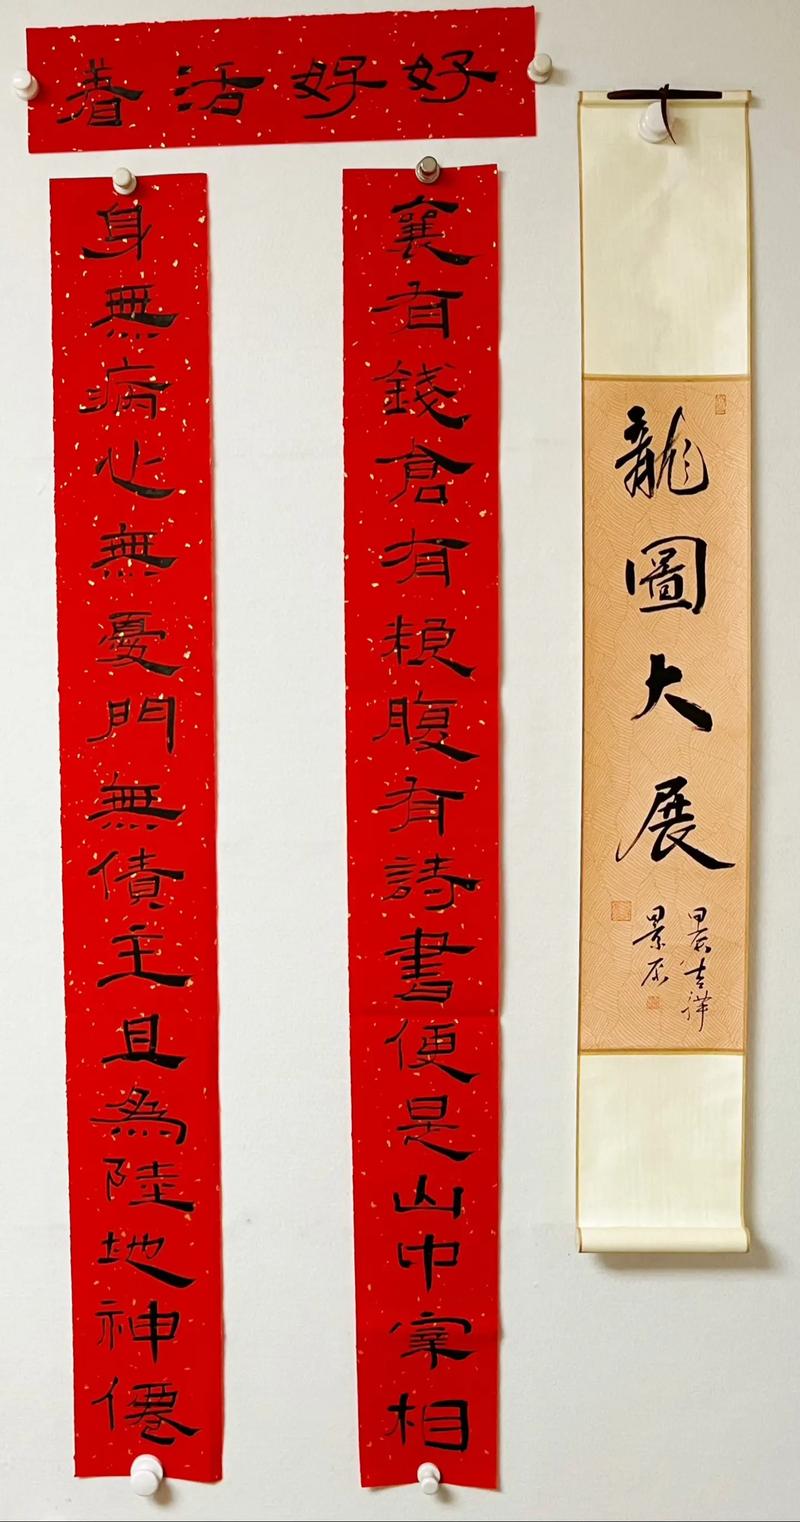 好好活着
襄有錢倉有粮腹有詩書便是山中宰相
身無病心無憂門無債主且為陸地神僊
龍圖大展
甲辰吉祥